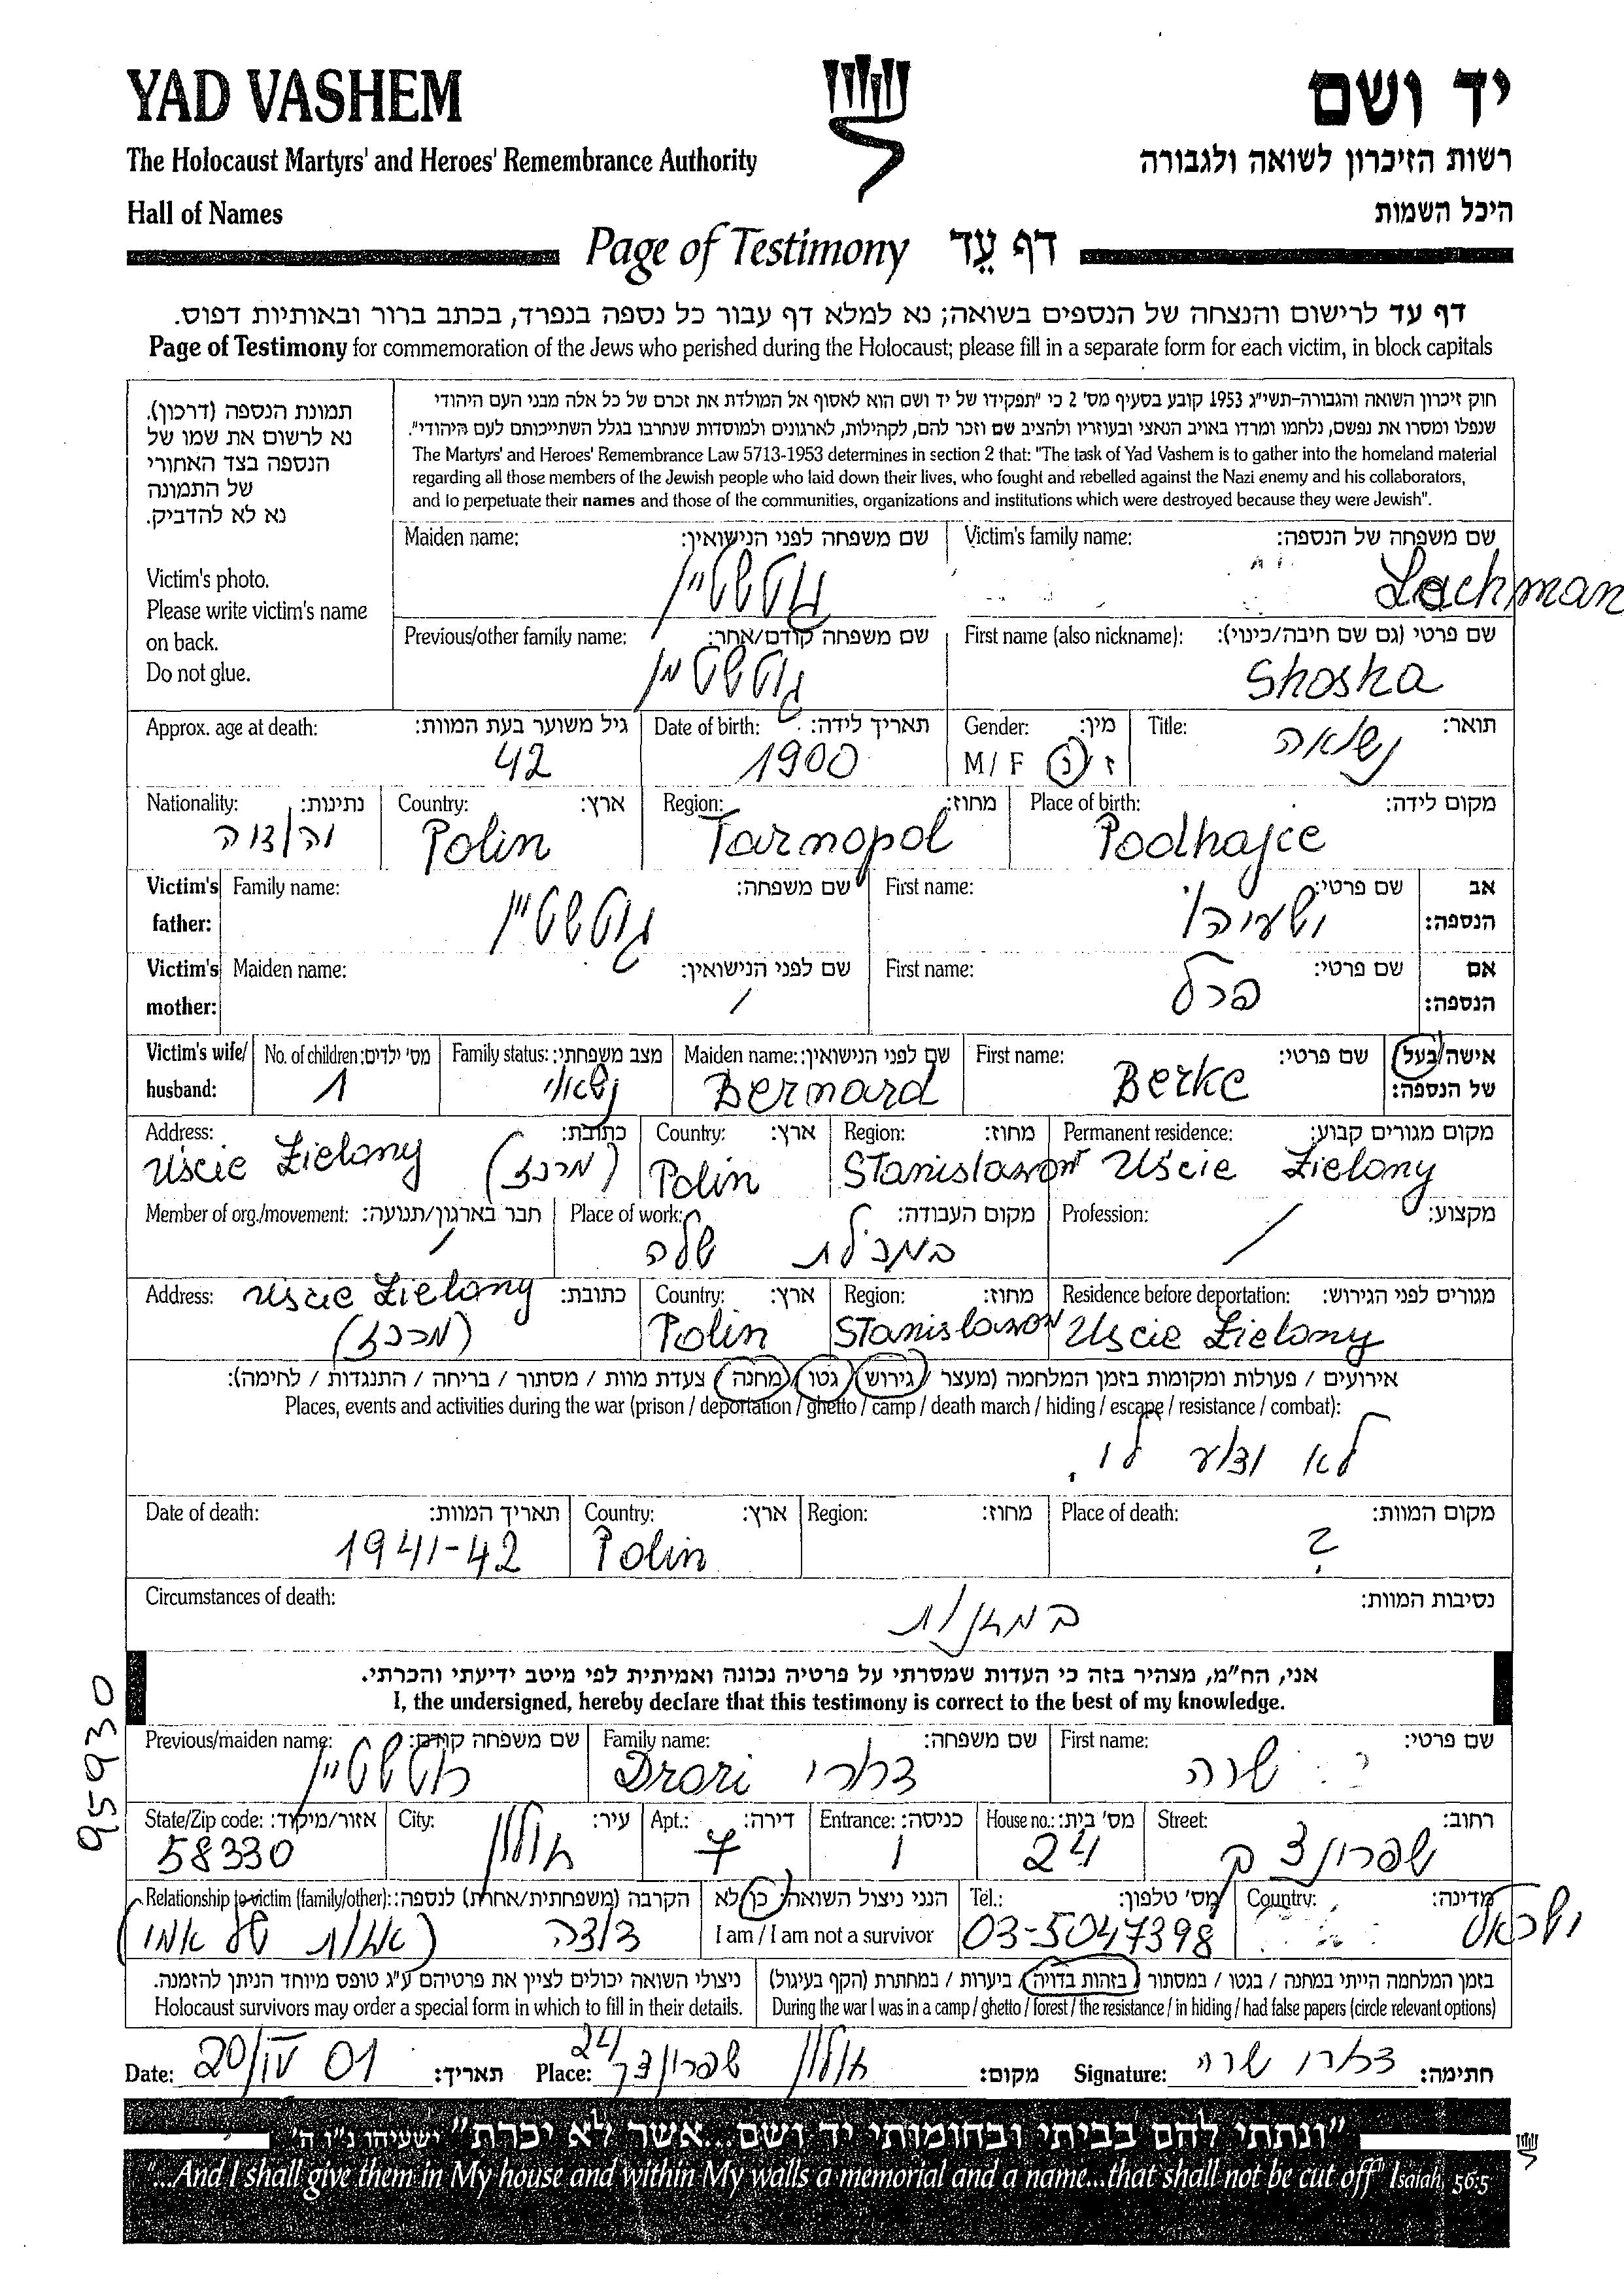 YAD VASHEM
יד ושם
The Holocaust Martyrs' and Heroes' Remembrance Authority
רשות הזיכרון לשואה ולגבורה
Hall of Names
היכל השמות
Page of Testimony דף עֵד
דף עד לרישום והנצחה של הנספים בשואה; נא למלא דף עבור כל נספה בנפרד, בכתב ברור ובאותיות דפוס.
Page of Testimony for commemoration of the Jews who perished during the Holocaust; please fill in a separate form for each victim, in block capitals
תמונת הנספה (דרכון).
נא לרשום את שמו של
הנספה בצד האחורי
של התמונה
נא לא להדביק.
Victim's photo.
Please write victim's name
on back.
Do not glue.
חוק זיכרון השואה והגבורה-תשי"ג 1953 קובע בסעיף מס' 2 כי "תפקידו של יד ושם הוא לאסוף אל המולדת את זכרם של כל אלה מבני העם היהודי
שנפלו ומסרו את נפשם, נלחמו ומרדו באויב הנאצי ובעוזריו ולהציב שם וזכר להם, לקהילות, לארגונים ולמוסדות שנחרבו בגלל השתייכותם לעם היהודי".
The Martyrs' and Heroes' Remembrance Law 5713-1953 determines in section 2 that: "The task of Yad Vashem is to gather into the homeland material
regarding all those members of the Jewish people who laid down their lives, who fought and rebelled against the Nazi enemy and his collaborators,
and to perpetuate their names and those of the communities, organizations and institutions which were destroyed because they were Jewish".
Victim's family name: שם משפחה של הנספה:
Lachman
Maiden name: שם משפחה לפני הנישואין:
גוטשטיין
First name (also nickname): שם פרטי (גם שם חיבה/כינוי):
Shoska
Previous/other family name: שם משפחה קודם/אחר:
גוטשטיין
Title: תואר:
נשואה
Gender: מין:
M / F ז / נ
Date of birth: תאריך לידה:
1900
Approx. age at death: גיל משוער בעת המוות:
42
Place of birth: מקום לידה:
Podhajce
Region: מחוז:
Tarnopol
Country: ארץ:
Polin
Nationality: נתינות:
יהודיה
Victim's father: אב הנספה:
First name: שם פרטי:
ישעיהו
Family name: שם משפחה:
גוטשטיין
Victim's mother: אם הנספה:
First name: שם פרטי:
פרל
Maiden name: שם לפני הנישואין:
/
Victim's wife/ husband: אישה/בעל של הנספה:
First name: שם פרטי:
Berke
Maiden name: שם לפני הנישואין:
Bernard
Family status: מצב משפחתי:
נשואי
No. of children: מס' ילדים:
1
Permanent residence: מקום מגורים קבוע:
Uście Zielony
Region: מחוז:
Stanislawow
Country: ארץ:
Polin
Address: כתובת:
Uście Zielony (מרכז)
Profession: מקצוע:
/
Place of work: מקום העבודה:
במכולת שלה
Member of org./movement: חבר בארגון/תנועה:
/
Residence before deportation: מגורים לפני הגירוש:
Uscie Zielony
Region: מחוז:
Stanislawow
Country: ארץ:
Polin
Address: כתובת:
Uscie Zielony
(מרכז)
אירועים / פעולות ומקומות בזמן המלחמה (מעצר / גירוש / גטו / מחנה / צעדת מוות / מסתור / בריחה / התנגדות / לחימה):
Places, events and activities during the war (prison / deportation / ghetto / camp / death march / hiding / escape / resistance / combat):
לא ידוע לי.
Place of death: מקום המוות:
?
Region: מחוז:
Country: ארץ:
Polin
Date of death: תאריך המוות:
1941-42
Circumstances of death: נסיבות המוות:
אני, הח"מ, מצהיר בזה כי העדות שמסרתי על פרטיה נכונה ואמיתית לפי מיטב ידיעתי והכרתי.
I, the undersigned, hereby declare that this testimony is correct to the best of my knowledge.
95930
First name: שם פרטי:
שרה
Family name: שם משפחה:
Drori דרורי
Previous/maiden name: שם משפחה קודם:
גוטשטיין
Street: רחוב:
שפרינצק
House no.: מס' בית:
24
Entrance: כניסה:
1
Apt.: דירה:
7
City: עיר:
חולון
State/Zip code: אזור/מיקוד:
58330
Country: מדינה:
ישראל
Tel.: מס' טלפון:
03-5047398
הנני ניצול השואה: כן / לא
I am / I am not a survivor
Relationship to victim (family/other): הקרבה (משפחתית/אחרת) לנספה:
דודה (אחות של אמי)
בזמן המלחמה הייתי במחנה / בגטו / במסתור / בזהות בדויה / ביערות / במחתרת (הקף בעיגול)
During the war I was in a camp / ghetto / forest / the resistance / in hiding / had false papers (circle relevant options)
ניצולי השואה יכולים לציין את פרטיהם ע"ג טופס מיוחד הניתן להזמנה.
Holocaust survivors may order a special form in which to fill in their details.
Date: 20/IV 01 תאריך: Place: שפרינצק 24 חולון מקום: Signature: דרורי שרה חתימה:
"ונתתי להם בביתי ובחומותי יד ושם...אשר לא יכרת" ישעיהו נ"ו ה'
"...And I shall give them in My house and within My walls a memorial and a name...that shall not be cut off" Isaiah, 56:5